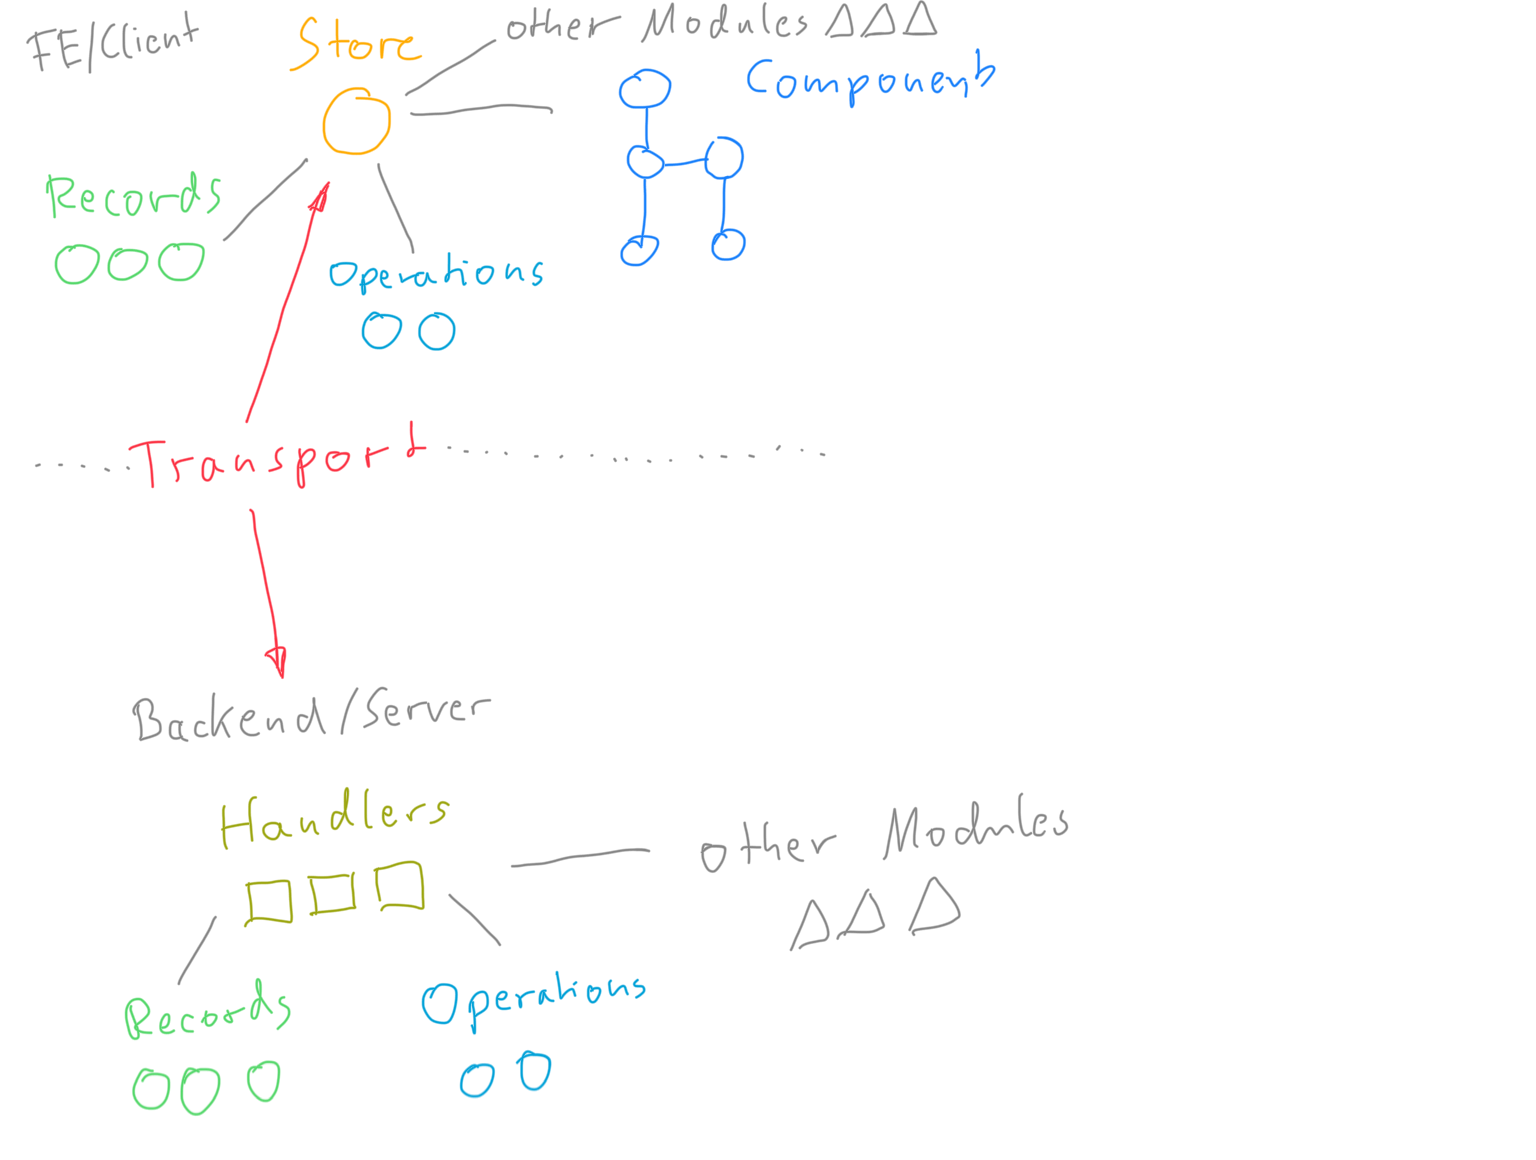 FE/Client
Store
other Modules
Components
Records
Operations
Transport
Backend/Server
Handlers
other Modules
Records
Operations